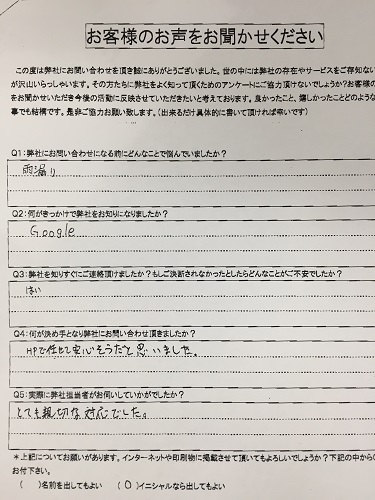 お客様のお声をお聞かせください
この度は弊社にお問い合わせを頂き誠にありがとうございます。世の中には弊社の存在やサービスをご存知ない
が沢山いらっしゃいます。その方たちに弊社をよく知って頂くためのアンケートにご協力頂けないでしょうか?お客様の
をお聞かせいただき今後の活動に反映させていただきたいと考えております。良かったこと、嬉しかったことどのよう
事でも結構です。是非ご協力お願い致します。(出来るだけ具体的に書いて頂ければ幸いです)
Q1:弊社にお問い合わせになる前にどんなことで悩んでいましたか?
雨漏り
Q2:何がきっかけで弊社をお知りになりましたか?
Google
Q3:弊社を知りすぐにご連絡頂けましたか?もしご決断されなかったとしたらどんなことがご不安でしたか?
はい
Q4:何が決め手となり弊社にお問い合わせ頂きましたか?
HPで任せて安心そうだと思いました。
Q5:実際に弊社担当者がお伺いしていかがでしたか?
とても親切な対応でした。
*上記についてお願いがあります。インターネットや印刷物に掲載させて頂いてもよろしいでしょうか?下記の中から
お付下さい。
( )名前を出してもよい (○)イニシャルなら出してもよい